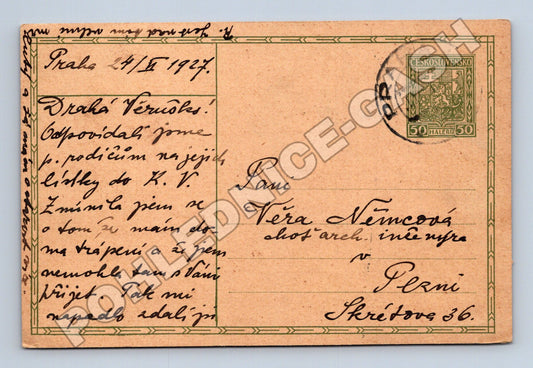 Praha 24/V 1927.
Drahá Věruško!
Odpovídali jsme
p. rodičům na jejich
lístky do K. V.
Zmínila jsem se
o tom že mám do-
ma trápení a že jsem
nemohla tam s Vámi
přijet. Tak mi
napadlo
ČESKOSLOVENSKO
50 HALÉŘŮ 50
PRAHA
Paní
Věra Němcová
choť arch. inženýra
v
Plzni
Skrétova 36.
POHLEDNICE-GASH